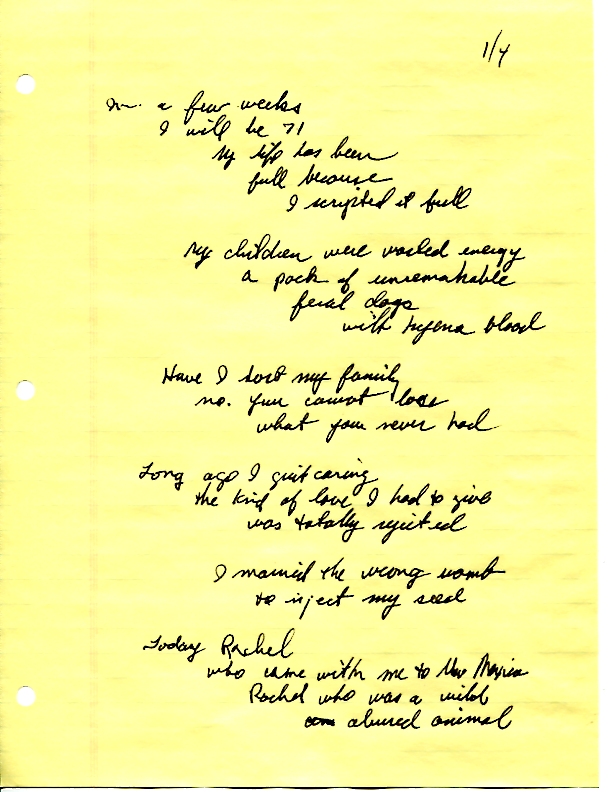 1/4
In a few weeks
I will be 71
My life has been
full because
I scripted it full
My children were wasted energy
a pack of unremarkable
feral dogs
with hyena blood
Have I lost my family
no. you cannot lose
what you never had
Long ago I quit caring
the kind of love I had to give
was totally rejected
I married the wrong womb
to inject my seed
Today Rachel
who came with me to New Mexico
Rachel who was a wild
abused animal